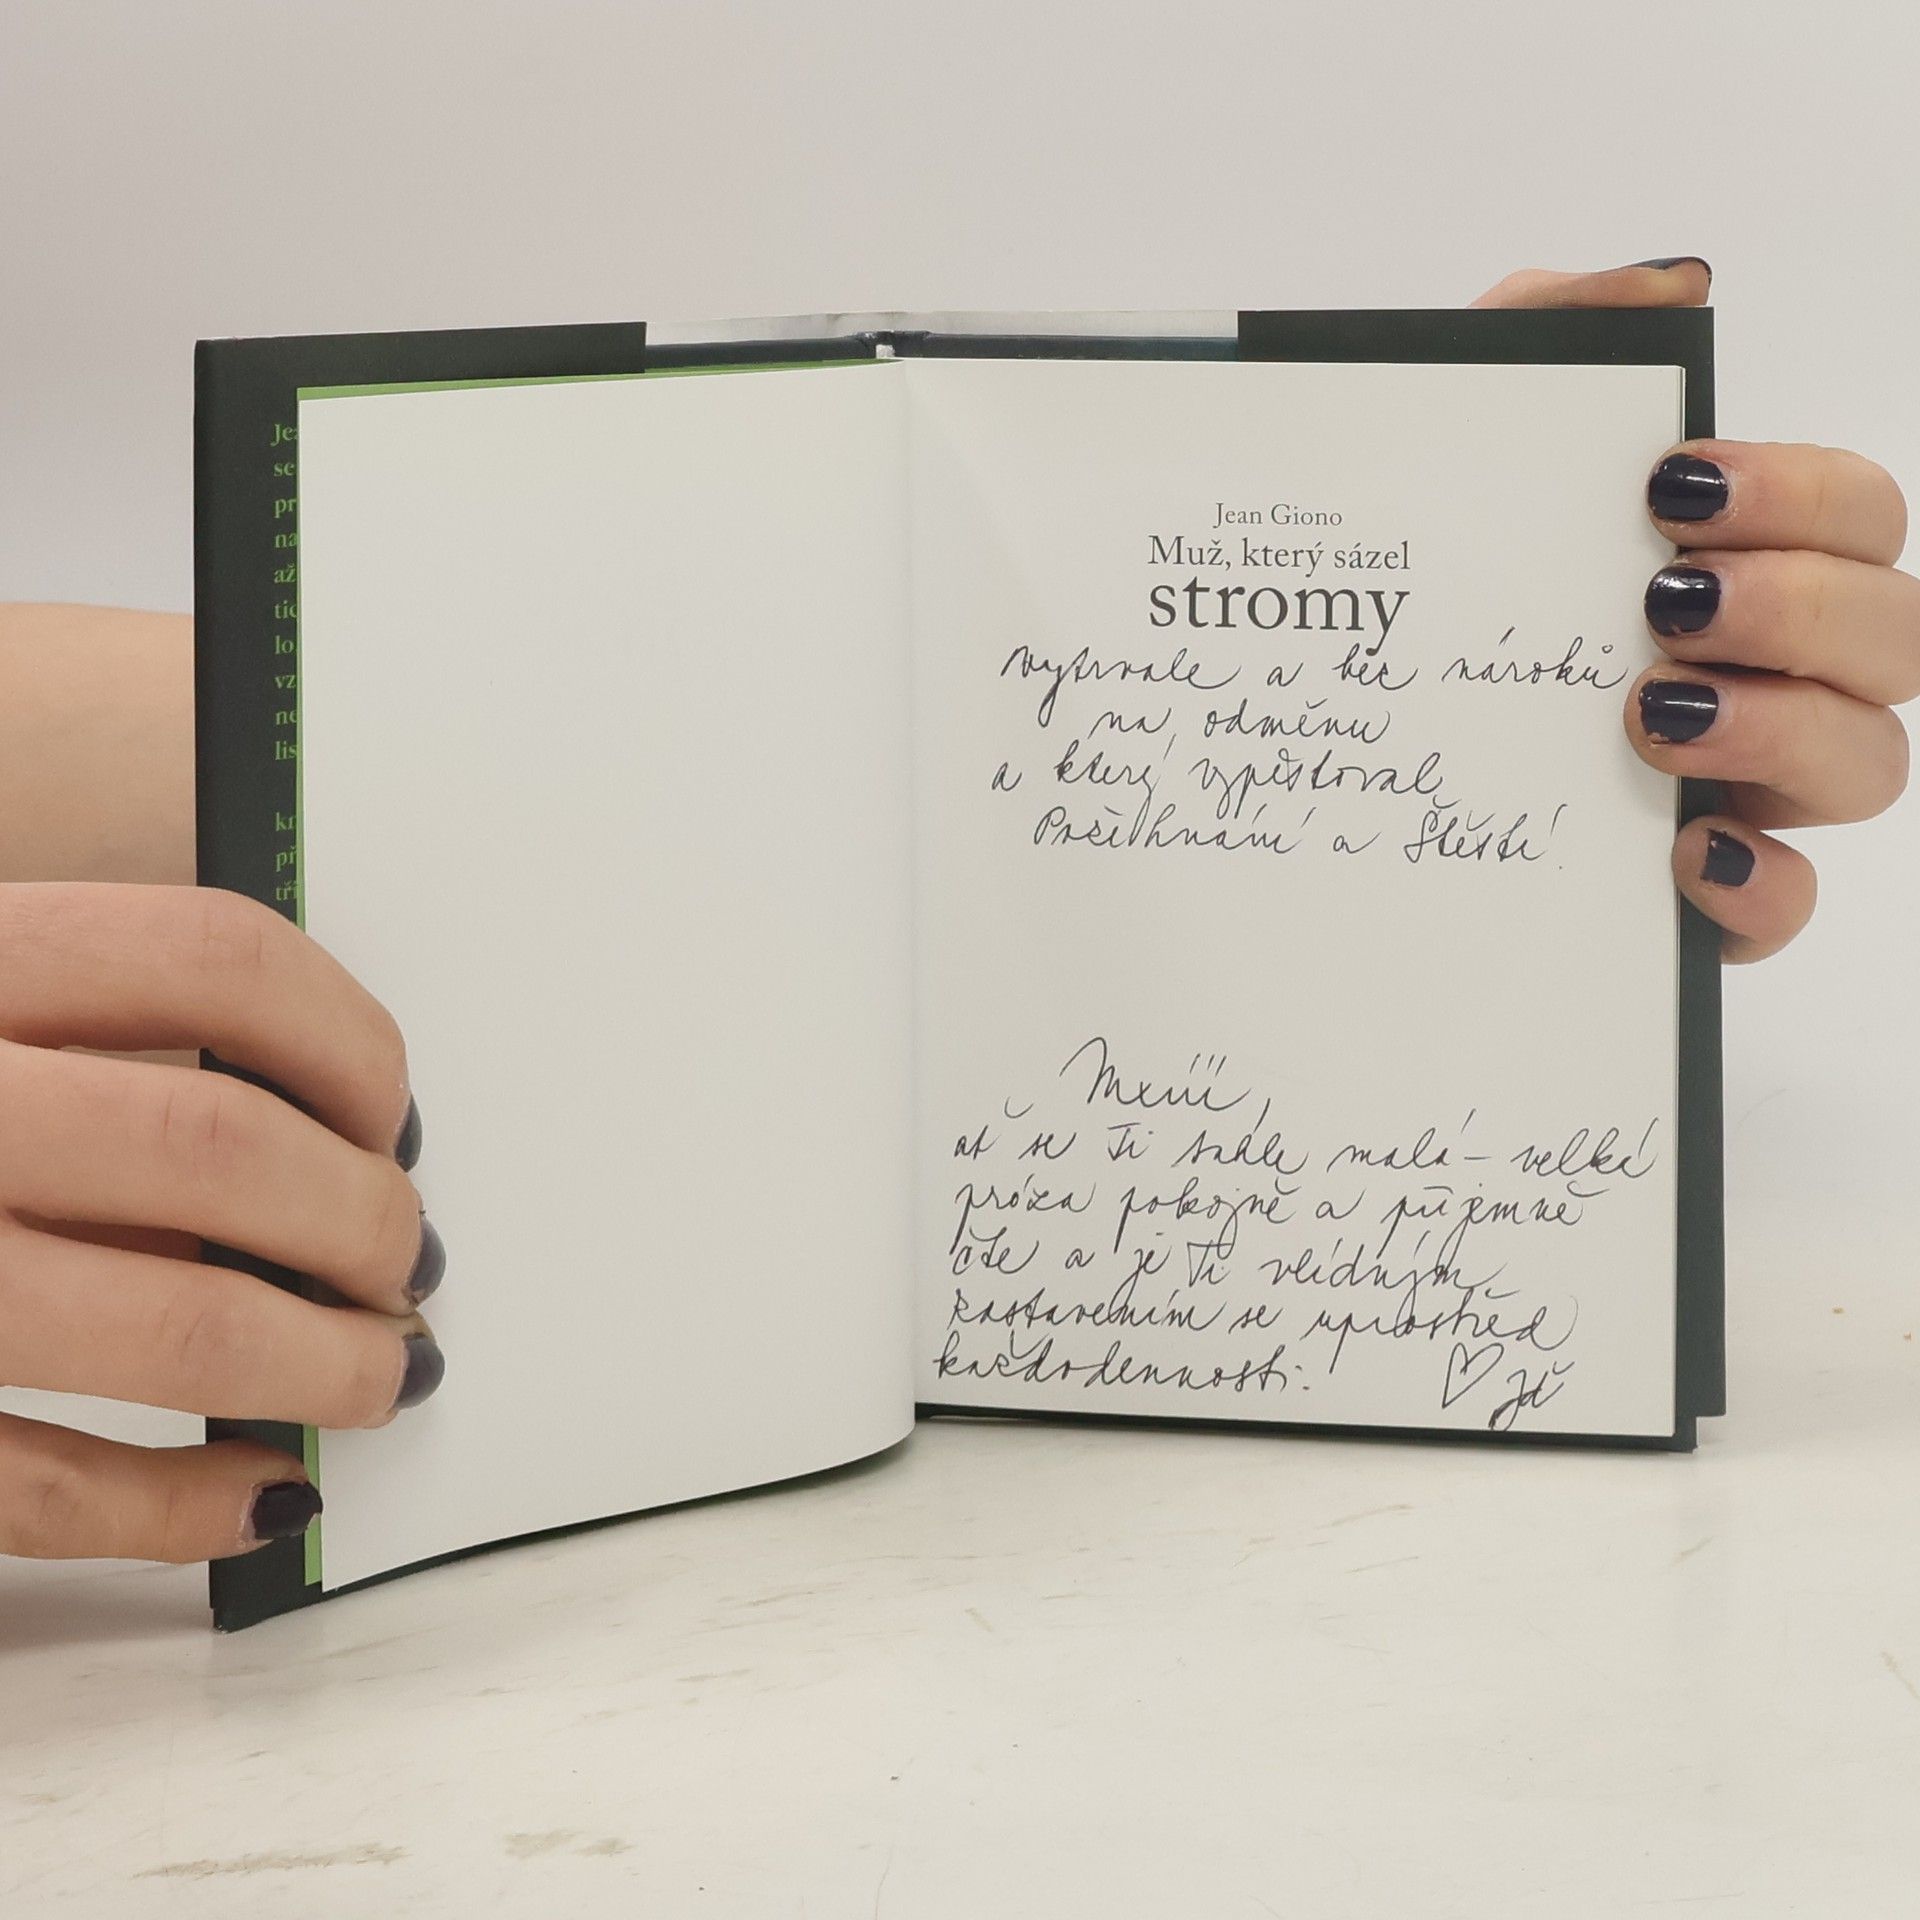 Jea
se
pr
na
až
tic
lo
vz
ne
lis
kn
př
tři
Jean Giono
Muž, který sázel
stromy
vytrvale a bez nároků
na odměnu
a který vypěstoval
Požehnání a Štěstí.
ať se Ti tahle malá – velká
próza pokojně a příjemně
čte a je Ti vlídným
zastavením se uprostřed
každodennosti.